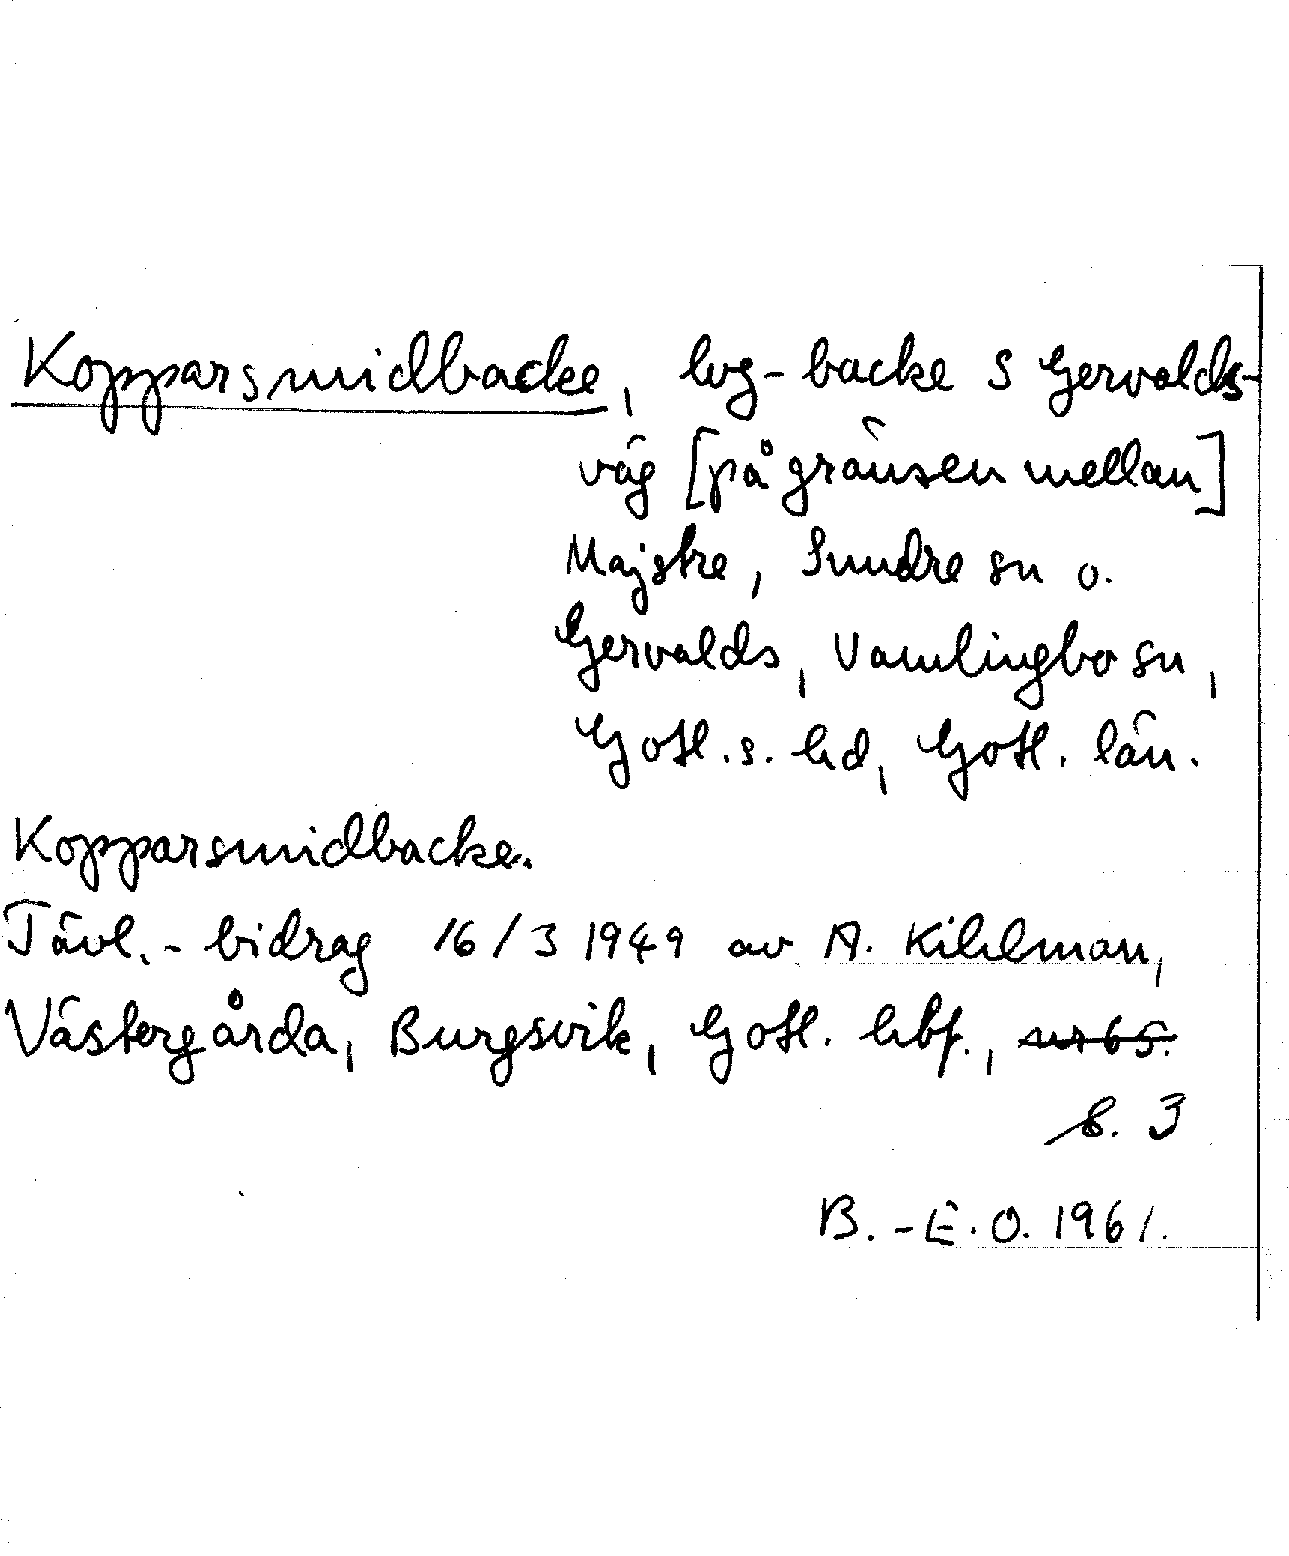 Kopparsmidbacke, lvg-backe S Gervalds-
väg [på gränsen mellan]
Majstre, Sundre sn o.
Gervalds, Vamlingbo sn,
Gotl. s. hd, Gotl. län.
Kopparsmidbacke.
Tävl.-bidrag 16/3 1949 av A. Kihlman,
Västergårda, Burgsvik, Gotl. hbf., nr 65.
s. 3
B.-E. O. 1961.